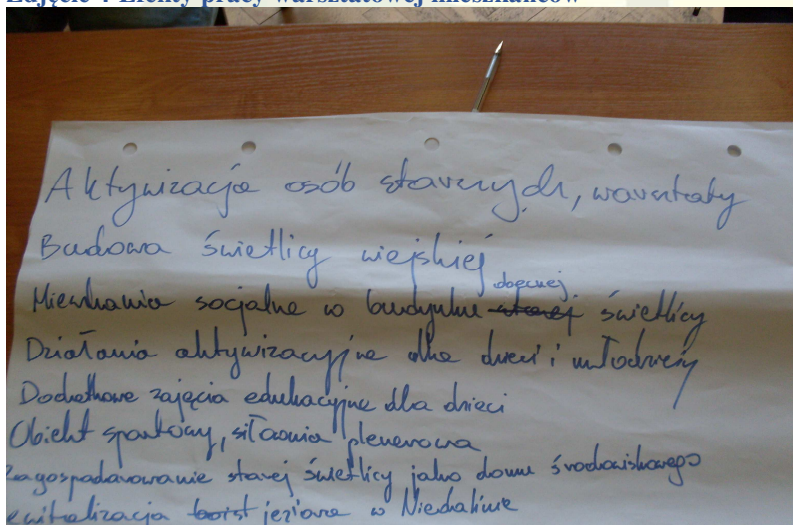 Zdjęcie 4 Efekty pracy warsztatowej mieszkańców
Aktywizacja osób starszych, warsztaty
Budowa świetlicy wiejskiej
Mieszkania socjalne w budynku starej obecnej świetlicy
Działania aktywizacyjne dla dzieci i młodzieży
Dodatkowe zajęcia edukacyjne dla dzieci
Obiekt sportowy, siłownia plenerowa
Zagospodarowanie starej świetlicy jako domu środowiskowego
ewitalizacja jeziora w Niedalinie